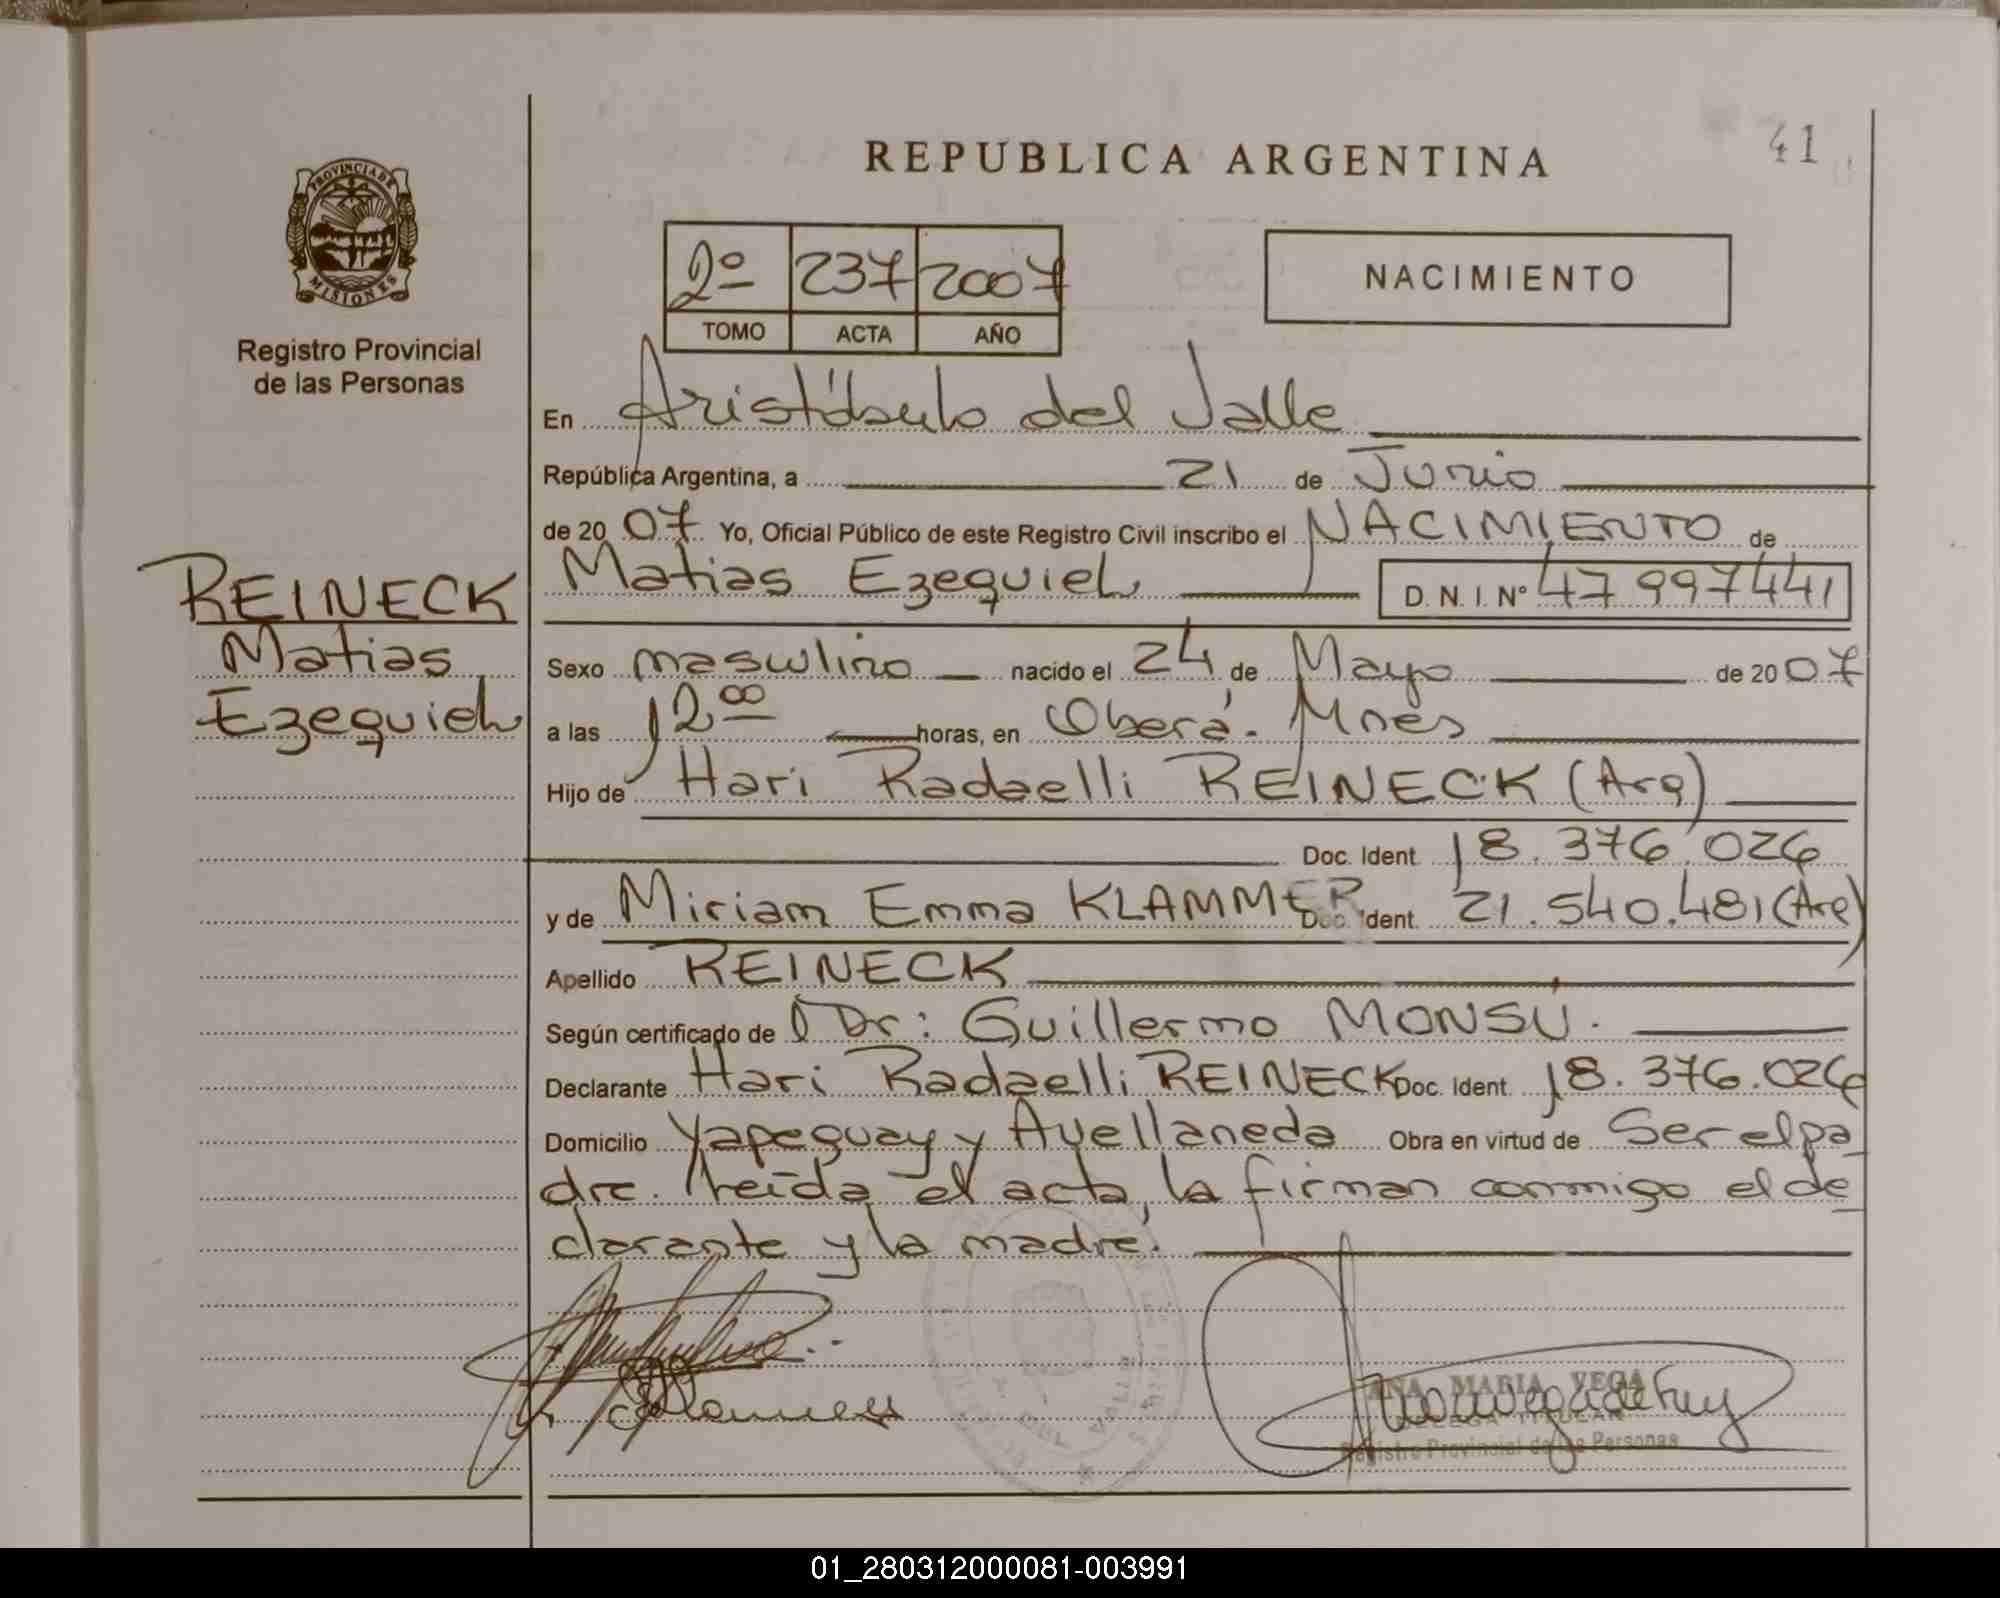 REPUBLICA ARGENTINA
41
PROVINCIA DE MISIONES
Registro Provincial
de las Personas
2º 237 2007
TOMO ACTA AÑO
NACIMIENTO
En Aristóbulo del Valle
República Argentina, a 21 de Junio
de 20 07 Yo, Oficial Público de este Registro Civil inscribo el NACIMIENTO de
Matias Ezequiel D. N. I. Nº 47997441
REINECK
Matias
Ezequiel
Sexo masculino nacido el 24 de Mayo de 20 07
a las 12 00 horas, en Oberá. Mnes
Hijo de Hari Radaelli REINECK (Arg)
Doc. Ident. 18.376.026
y de Miriam Emma KLAMMER Doc. Ident. 21.540.481 (Arg)
Apellido REINECK
Según certificado de Dr: Guillermo MONSÚ.
Declarante Hari Radaelli REINECK Doc. Ident. 18.376.026
Domicilio Yapeguay y Avellaneda Obra en virtud de Ser el pa
dre. Leída el acta, la firman conmigo el de
clarante y la madre.
ANA MARIA VEGA
DELEGA TITULAR
Registro Provincial de las Personas
01_280312000081-003991